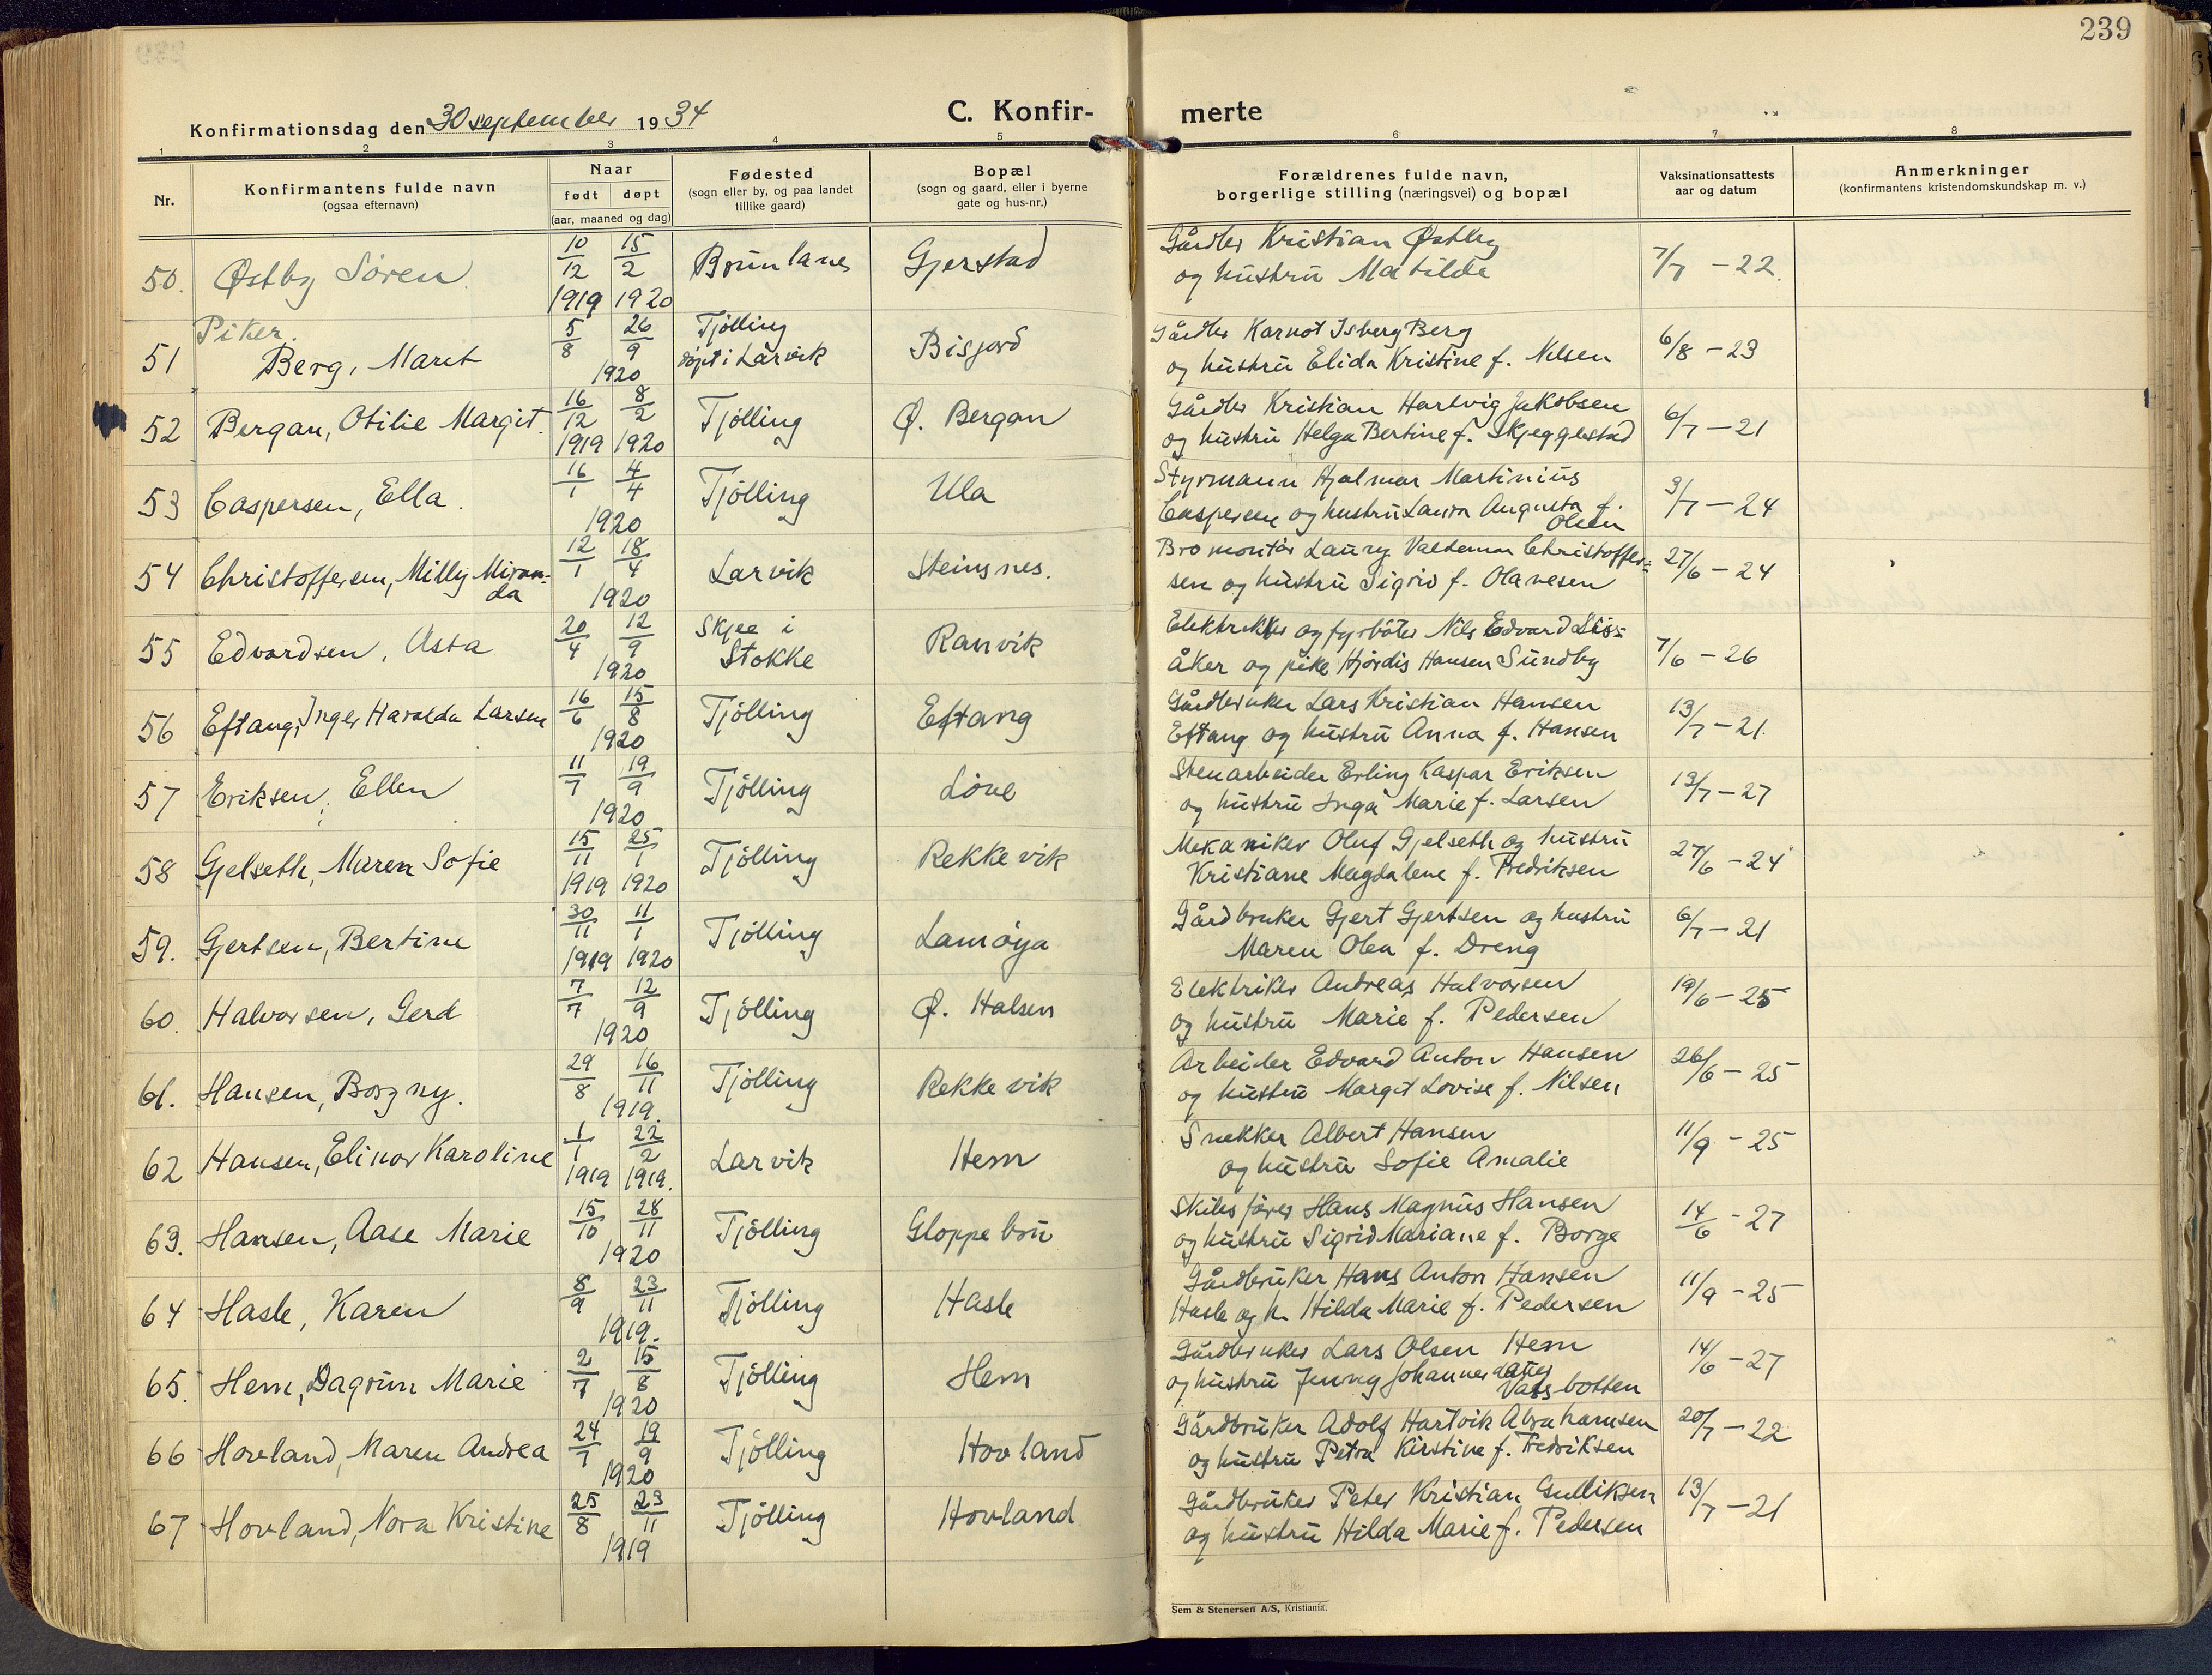 239
Konfirmationsdag den 30 september 1934
C. Konfir-
merte
1 2 3 4 5 6 7 8
Nr.
Konfirmantens fulde navn
(ogsaa efternavn)
Naar
født døpt
(aar, maaned og dag)
Fødested
(sogn eller by, og paa landet
tillike gaard)
Bopæl
(sogn og gaard, eller i byerne
gate og hus-nr.)
Forældrenes fulde navn,
borgerlige stilling (næringsvei) og bopæl
Vaksinationsattests
aar og datum
Anmerkninger
(konfirmantens kristendomskundskap m. v.)
50. Østby Sören 10/12 1919 15/2 1920 Brunlanes Gjerstad
Gårdbr Kristian Østby
og hustru Matilde
7/7 - 22.
Piker.
51 Berg, Marit 5/8 26/9 1920 Tjölling
döpt i Larvik
Bisjord
Gårdbr Karnot Isberg Berg
og hustru Elida Kristine f. Nilsen
6/8 - 23
52 Bergan, Otilie Margit 16/12 1919 8/2 1920 Tjölling Ø. Bergan
Gårdbr Kristian Hartvig Jakobsen
og hustru Helga Bertine f. Skjeggestad
6/7 - 21
53 Caspersen, Ella 16/1 4/4 1920 Tjölling Ula
Styrmann Hjalmar Martinius
Caspersen og hustru Laura Augusta f.
Olsen
3/7 - 24
54 Christoffersen, Milly Miran-
da
12/1 18/4 1920 Larvik Steinsnes.
Bromontör Laury Valdemar Christoffer-
sen og hustru Sigrid f. Olavesen
27/6 - 24
55 Edvardsen, Asta 20/4 12/9 1920 Skjee i
Stokke
Ranvik
Elektriker og fyrböter Nils Edvard Lis-
åker og pike Hjördis Hansen Sundby
7/6 - 26
56 Eftang, Inger Haralda Larsen 16/6 15/8 1920 Tjölling Eftang
Gårdbruker Lars Kristian Hansen
Eftang og hustru Anna f. Hansen
13/7 - 21.
57 Eriksen, Ellen 11/7 19/9 1920 Tjölling Löve
Stenarbeider Erling Kaspar Eriksen
og hustru Inga Marie f. Larsen
13/7 - 27
58 Gjelseth, Maren Sofie 15/11 1919 25/1 1920 Tjölling Rekkevik
Mekaniker Oluf Gjelseth og hustru
Kristiane Magdalene f. Fredriksen
27/6 - 24
59. Gjertsen, Bertine 30/11 1919 11/1 1920 Tjölling Lamöya
Gårdbruker Gjert Gjertsen og hustru
Maren Olea f. Dreng
6/7 - 21
60. Halvorsen, Gerd 7/7 12/9 1920 Tjölling Ø. Halsen
Elektriker Andreas Halvorsen
og hustru Marie f. Pedersen
19/6 - 25
61. Hansen, Borgny. 29/8 16/11 1919. Tjölling Rekkevik
Arbeider Edvard Anton Hansen
og hustru Margit Lovise f. Nilsen
26/6 - 25
62 Hansen, Elinor Karoline 1/1 1919 22/2 1919. Larvik Hem
Snekker Albert Hansen
og hustru Sofie Amalie
11/9 - 25
63. Hansen, Aase Marie 15/10 28/11 1920 Tjölling Gloppebru
Skibsförer Hans Magnus Hansen
og hustru Sigrid Mariane f. Borge
14/6 - 27
64 Hasle, Karen 8/9 23/11 1919. Tjölling Hasle
Gårdbruker Hans Anton Hansen
Hasle og h. Hilda Marie f. Pedersen
11/9 - 25
65. Hem, Dagrun Marie 2/7 15/8 1920 Tjölling Hem
Gårdbruker Lars Olsen Hem
og hustru Jenny Johannesdatter
Vassbotten
14/6 - 27
66 Hovland, Maren Andrea 24/7 19/9 1920 Tjölling Hovland
Gårdbruker Adolf Hartvik Abrahamsen
og hustru Petra Kirstine f. Fredriksen
20/7 - 22
67 Hovland, Nora Kristine 25/8 23/11 1919 Tjölling Hovland
Gårdbruker Peter Kristian Gulliksen
og hustru Hilda Marie f. Pedersen
13/7 - 21
Sem & Stenersen A/S, Kristiania.